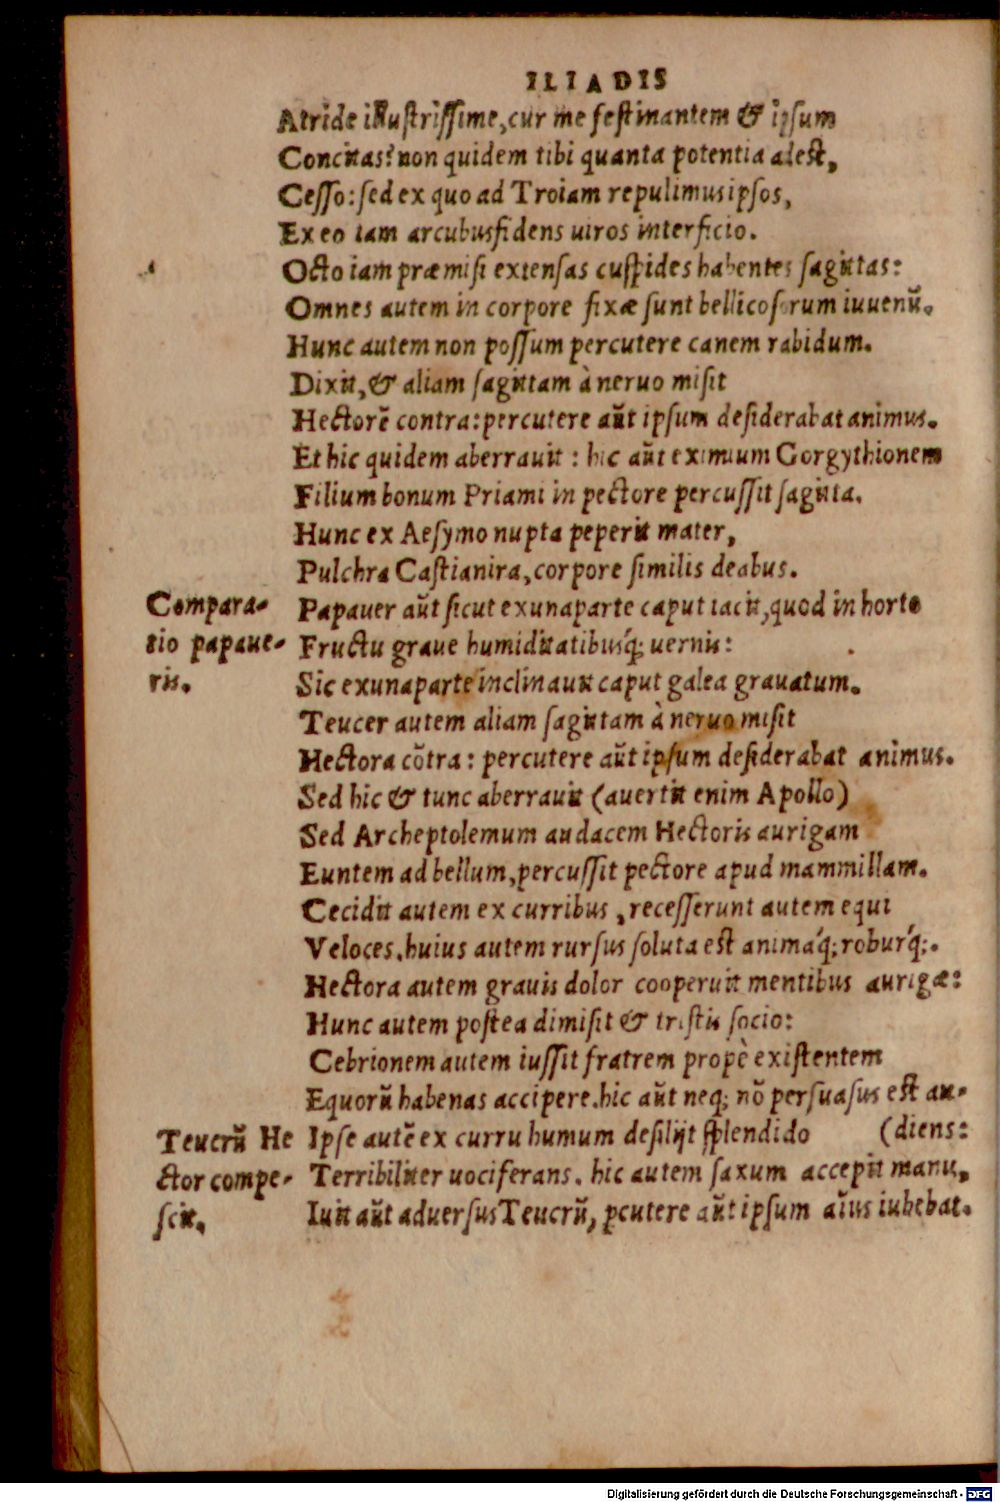 ILIADIS
Atride illustrissime, cur me festinantem & ipsum
Concitas? non quidem tibi quanta potentia adest,
Cesso: sed ex quo ad Troiam repulimus ipsos,
Ex eo iam arcubus fidens uiros interficio.
Octo iam præmisi extensas cuspides habentes sagittas:
Omnes autem in corpore fixæ sunt bellicosorum iuuenū.
Hunc autem non possum percutere canem rabidum.
Dixit, & aliam sagittam à neruo misit
Hectorē contra: percutere aūt ipsum desiderabat animus.
Et hic quidem aberrauit: hic aūt eximium Gorgythionem
Filium bonum Priami in pectore percussit sagitta.
Hunc ex Aesymo nupta peperit mater,
Pulchra Castianira, corpore similis deabus.
Compara- Papauer aūt sicut ex una parte caput iacit, quod in horto
tio papaue- Fructu graue humiditatibusq́; uernis:
ris. Sic ex una parte inclinauit caput galea grauatum.
Teucer autem aliam sagittam à neruo misit
Hectora cōtra: percutere aūt ipsum desiderabat animus.
Sed hic & tunc aberrauit (auertit enim Apollo)
Sed Archeptolemum audacem Hectoris aurigam
Euntem ad bellum, percussit pectore apud mammillam.
Cecidit autem ex curribus, recesserunt autem equi
Veloces. huius autem rursus soluta est animaq́; roburq́;.
Hectora autem grauis dolor cooperuit mentibus aurigæ:
Hunc autem postea dimisit & tristis socio:
Cebrionem autem iussit fratrem propè existentem
Equorū habenas accipere. hic aūt neq; nō persuasus est au-
Teucrū He Ipse autē ex curru humum desilijt splendido (diens:
ctor compe- Terribiliter uociferans. hic autem saxum accepit manu,
scit. Iuit aūt aduersus Teucrū, pcutere aūt ipsum aīus iubebat.
Digitalisierung gefördert durch die Deutsche Forschungsgemeinschaft - DFG